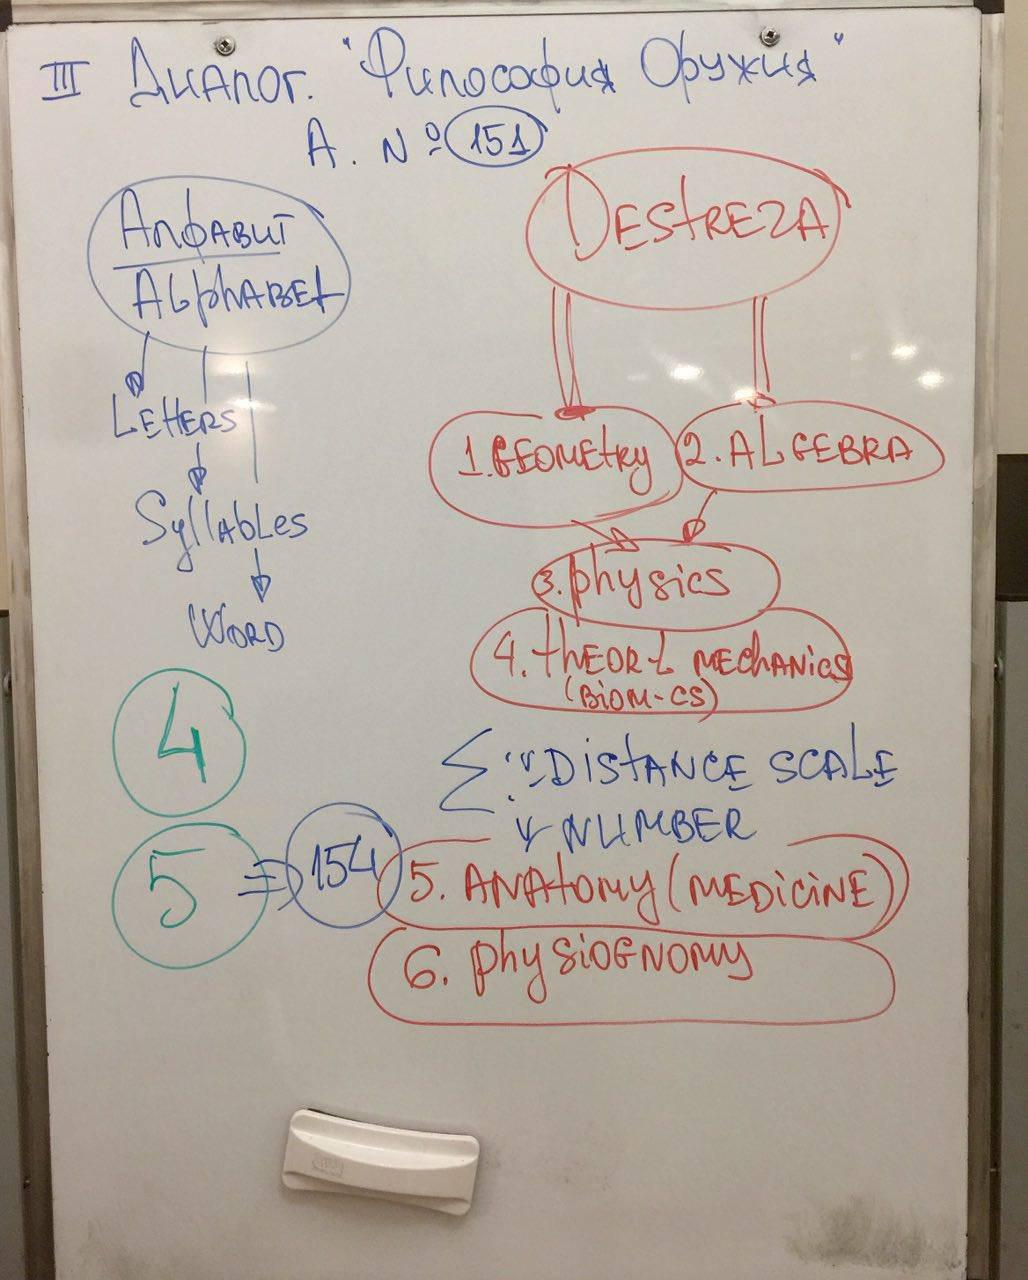 III Диалог. "Философия Оружия"
А. № 151
Алфавит
Alphabet
Letters
Syllables
Word
4
5 ⇒ 154
Destreza
1. Geometry
2. Algebra
3. Physics
4. Theor-l Mechanics
(Biom-cs)
Σ : Distance scale
Number
5. Anatomy (Medicine)
6. Physiognomy